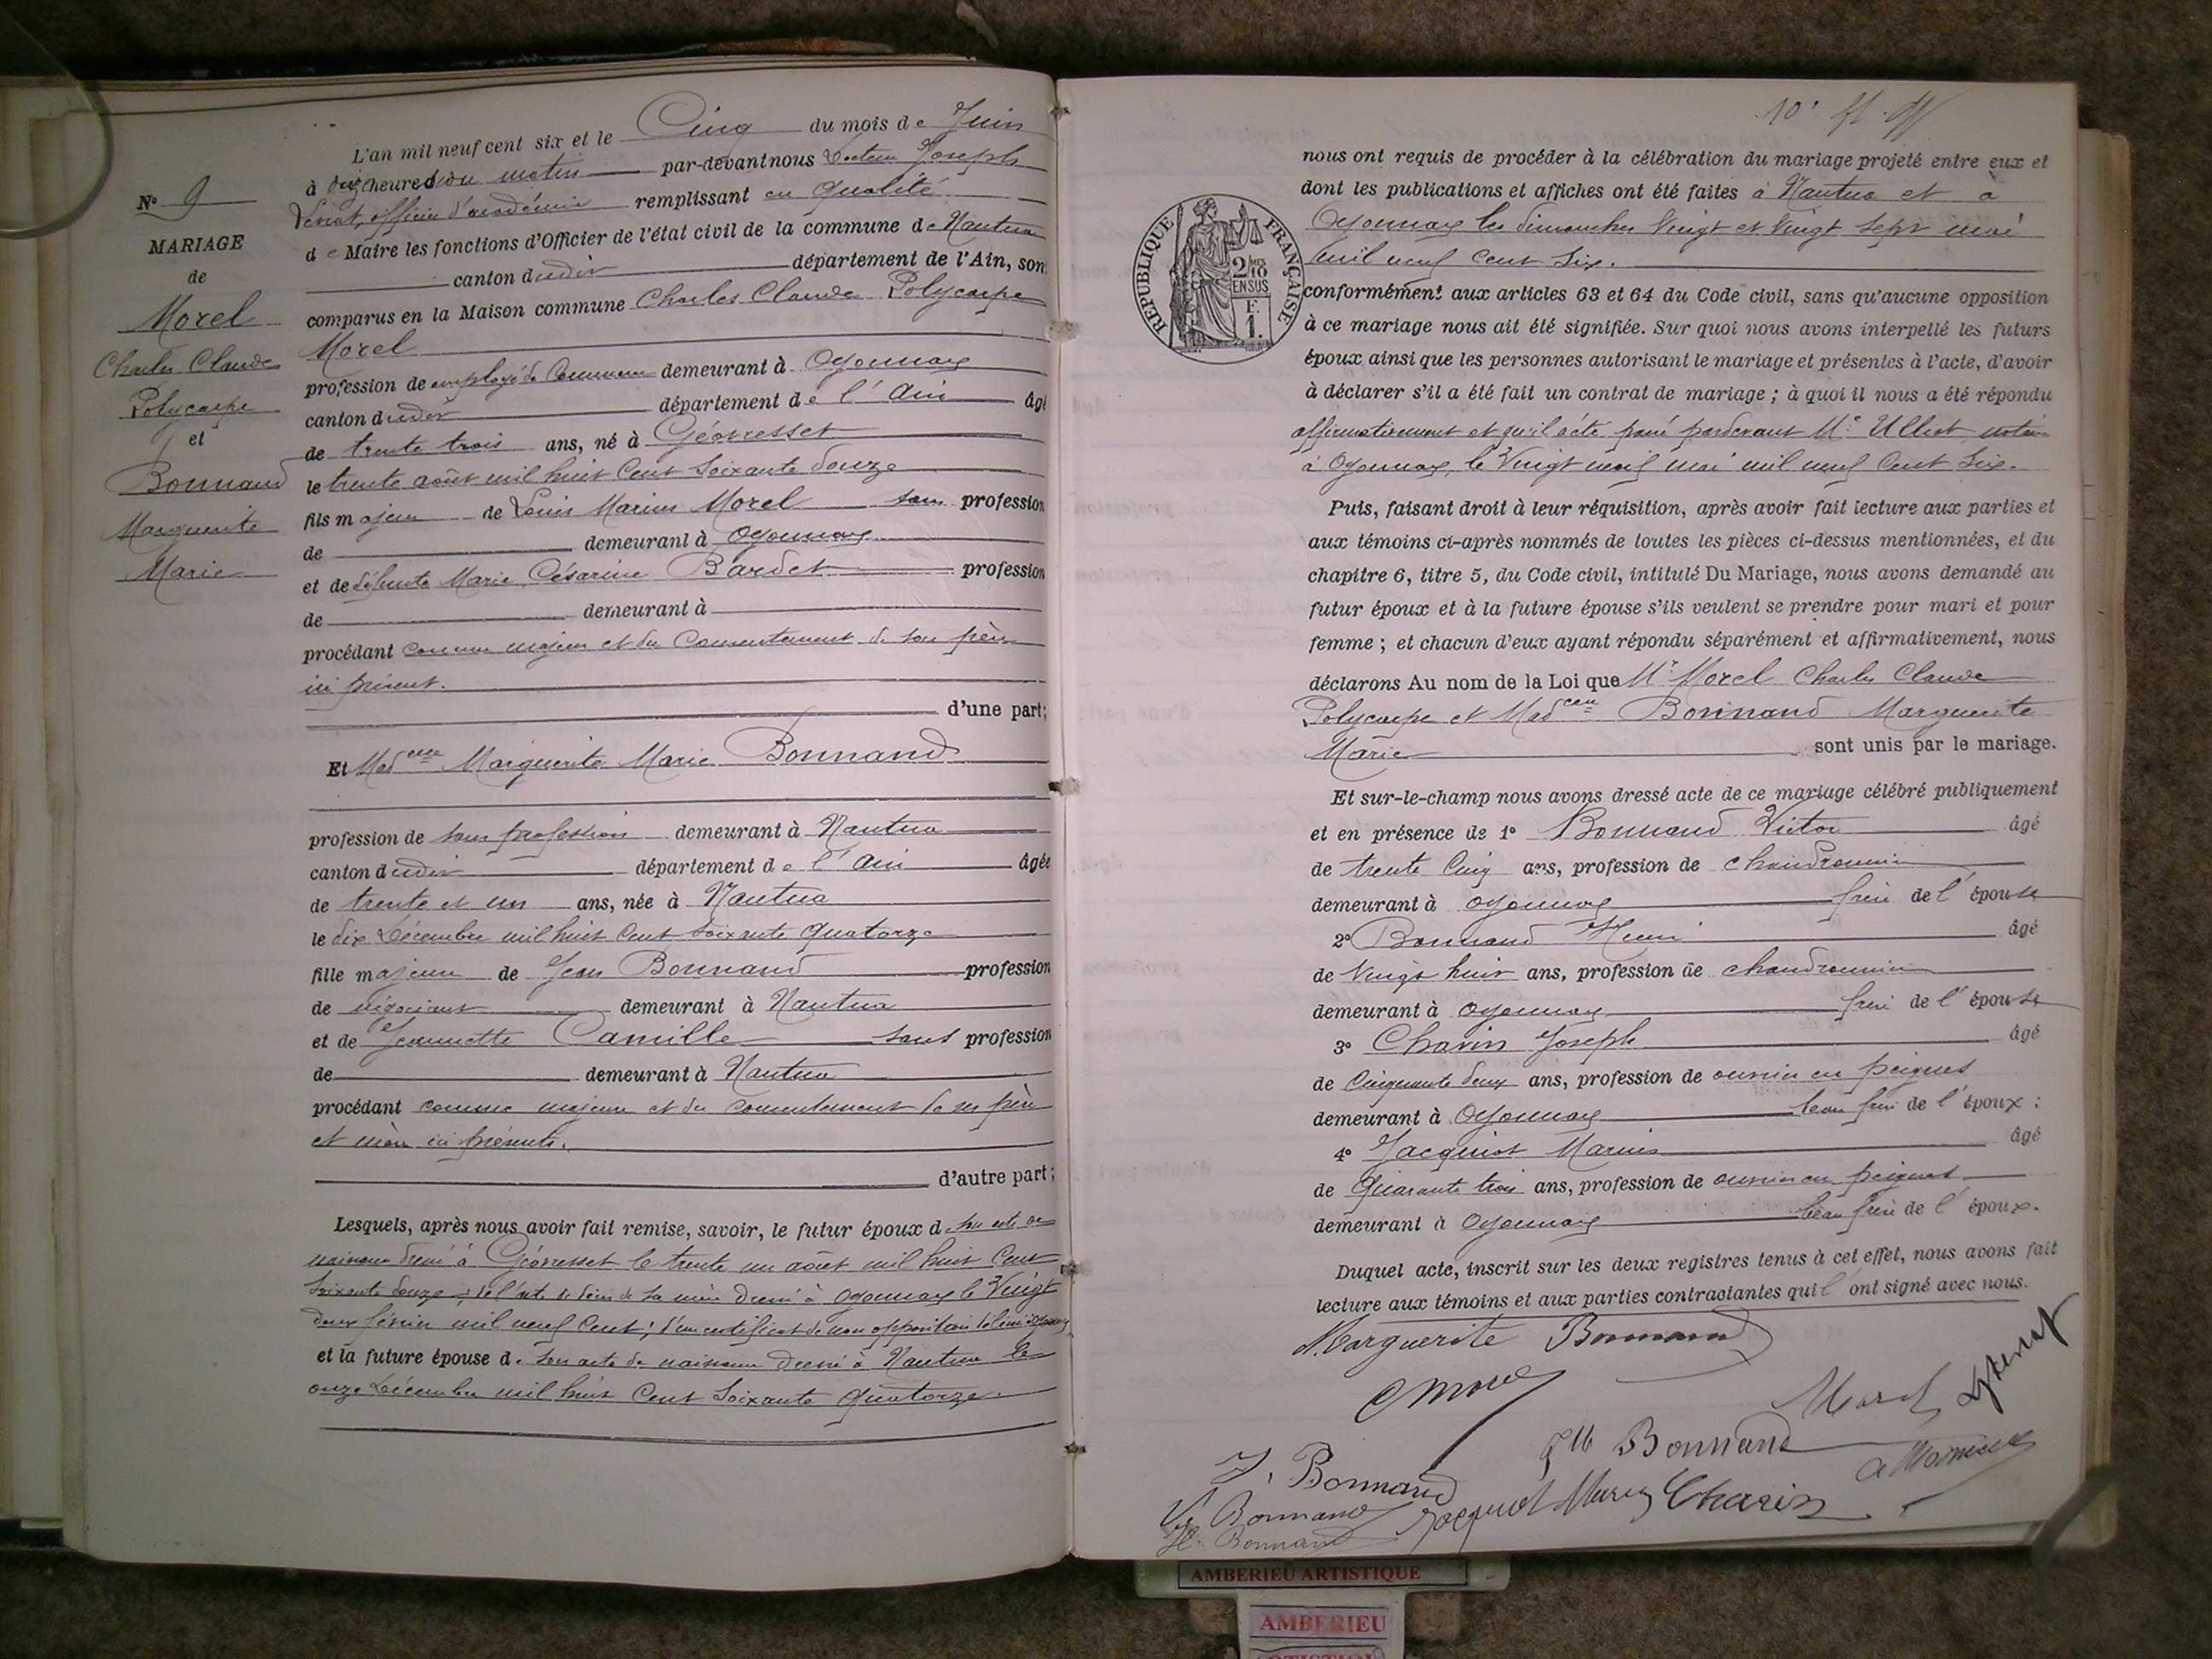 L'an mil neuf cent six et le Cinq du mois de Juin
à dix heures du matin par-devant nous Docteur Joseph
officier d'académie remplissant en qualité
de Maire les fonctions d'Officier de l'état civil de la commune de Nantua
canton dudit département de l'Ain, sont
comparus en la Maison commune Charles Claude Polycarpe
Morel
profession de employé de Commerce demeurant à Oyonnax
canton dudit département de l'Ain âgé
de trente trois ans, né à Géovresset
le trente août mil huit Cent Soixante douze
fils majeur de Louis Marius Morel sans profession
de demeurant à Oyonnax
et de défunte Marie Césarine Bardet profession
de demeurant à
procédant comme majeur et du Consentement de son père
ici présent.
d'une part;
N° 9
MARIAGE
de
Morel
Charles Claude
Polycarpe
et
Bonnand
Marguerite
Marie
Et Mad elle Marguerite Marie Bonnand
profession de sans profession demeurant à Nantua
canton dudit département de l'Ain âgée
de trente et un ans, née à Nantua
le dix Décembre mil huit Cent Soixante Quatorze
fille majeure de Jean Bonnand profession
de négociant demeurant à Nantua
et de Jeannette Camille sans profession
de demeurant à Nantua
procédant comme majeure et du consentement de ses père
et mère ici présents.
d'autre part;
Lesquels, après nous avoir fait remise, savoir, le futur époux d son acte de
naissance dressé à Géovresset le trente un août mil huit Cent
Soixante douze; de l'acte de décès de sa mère dressé à Oyonnax le Vingt
deux février mil neuf Cent; d'un certificat de non opposition délivré à Oyonnax
et la future épouse de son acte de naissance dressé à Nantua le
onze Décembre mil huit Cent Soixante Quatorze.
nous ont requis de procéder à la célébration du mariage projeté entre eux et
dont les publications et affiches ont été faites à Nantua et à
Oyonnax les dimanches Vingt et Vingt Sept mai
mil neuf Cent Six.
RÉPUBLIQUE FRANÇAISE
2/10 EN SUS
F. 1.
conformément aux articles 63 et 64 du Code civil, sans qu'aucune opposition
à ce mariage nous ait été signifiée. Sur quoi nous avons interpellé les futurs
époux ainsi que les personnes autorisant le mariage et présentes à l'acte, d'avoir
à déclarer s'il a été fait un contrat de mariage; à quoi il nous a été répondu
affirmativement et qu'il a été passé pardevant Me Ulliet notaire
à Oyonnax, le Vingt neuf mai mil neuf Cent Six.
Puis, faisant droit à leur réquisition, après avoir fait lecture aux parties et
aux témoins ci-après nommés de toutes les pièces ci-dessus mentionnées, et du
chapitre 6, titre 5, du Code civil, intitulé Du Mariage, nous avons demandé au
futur époux et à la future épouse s'ils veulent se prendre pour mari et pour
femme; et chacun d'eux ayant répondu séparément et affirmativement, nous
déclarons Au nom de la Loi que Mr Morel Charles Claude
Polycarpe et Mad elle Bonnand Marguerite
Marie sont unis par le mariage.
Et sur-le-champ nous avons dressé acte de ce mariage célébré publiquement
et en présence de 1° Bonnand Victor âgé
de trente Cinq ans, profession de chaudronnier
demeurant à Oyonnax frère de l'épouse
2° Bonnand Henri âgé
de Vingt huit ans, profession de chaudronnier
demeurant à Oyonnax frère de l'épouse
3° Chavin Joseph âgé
de Cinquante deux ans, profession de ouvrier en peignes
demeurant à Oyonnax beau frère de l'époux:
4° Jacquiot Marius âgé
de Quarante trois ans, profession de ouvrier en peignes
demeurant à Oyonnax beau frère de l'époux.
Duquel acte, inscrit sur les deux registres tenus à cet effet, nous avons fait
lecture aux témoins et aux parties contractantes qui l'ont signé avec nous.
Marguerite Bonnand
C Morel
Morel
J. Bonnand
Bonnand
V. Bonnand
Chavin
H. Bonnand
AMBERIEU ARTISTIQUE
AMBERIEU
ARTISTIQUE